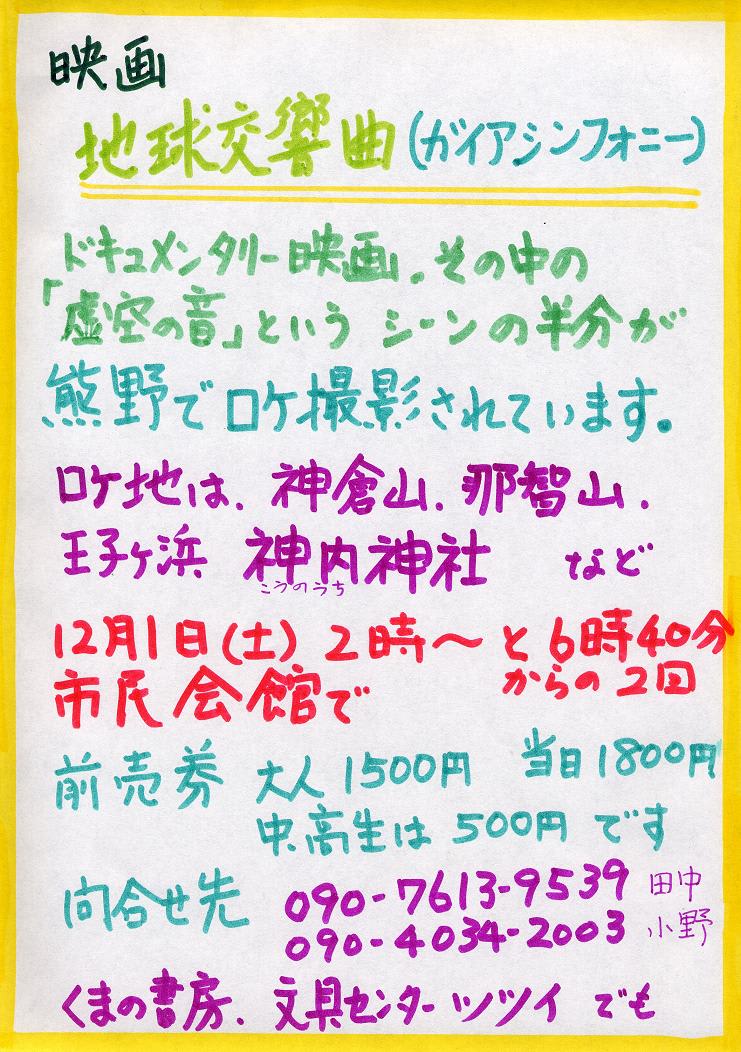 映画
地球交響曲(ガイアシンフォニー)
ドキュメンタリー映画、その中の
「虚空の音」という シーンの半分が
熊野でロケ撮影されています。
ロケ地は、神倉山、那智山、
王子ヶ浜 神内神社 など
こうのうち
12月1日(土) 2時〜 と 6時40分
市民会館で からの2回
前売券 大人1500円 当日1800円
中、高生は 500円 です
問合せ先 090-7613-9539 田中
090-4034-2003 小野
くまの書房、文具センターツツイ でも